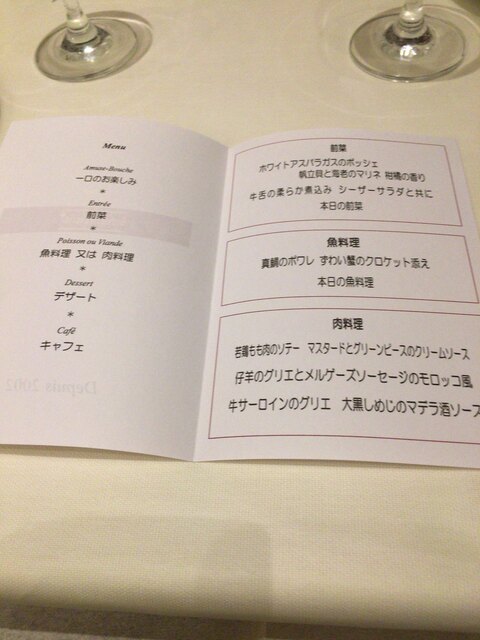 Menu
Amuse-Bouche
一口のお楽しみ
*
Entrée
前菜
*
Poisson ou Viande
魚料理 又は 肉料理
*
Dessert
デザート
*
Café
キャフェ
Depuis 2002
前菜
ホワイトアスパラガスのポッシェ
帆立貝と海老のマリネ 柑橘の香り
牛舌の柔らか煮込み シーザーサラダと共に
本日の前菜
魚料理
真鯛のポワレ ずわい蟹のクロケット添え
本日の魚料理
肉料理
若鶏もも肉のソテー マスタードとグリーンピースのクリームソース
仔羊のグリエとメルゲーズソーセージのモロッコ風
牛サーロインのグリエ 大黒しめじのマデラ酒ソース